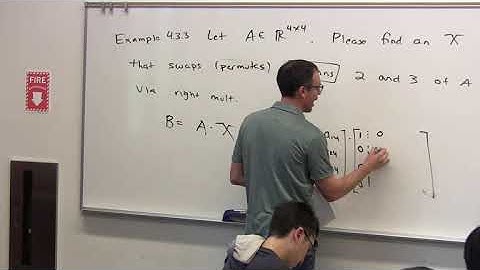 Example 4.3.3 Let A ∈ ℝ^{4×4}. Please find an X
that swaps (permutes) 2 and 3 of A
via right mult.
B = A · X
1 0
0
FIRE